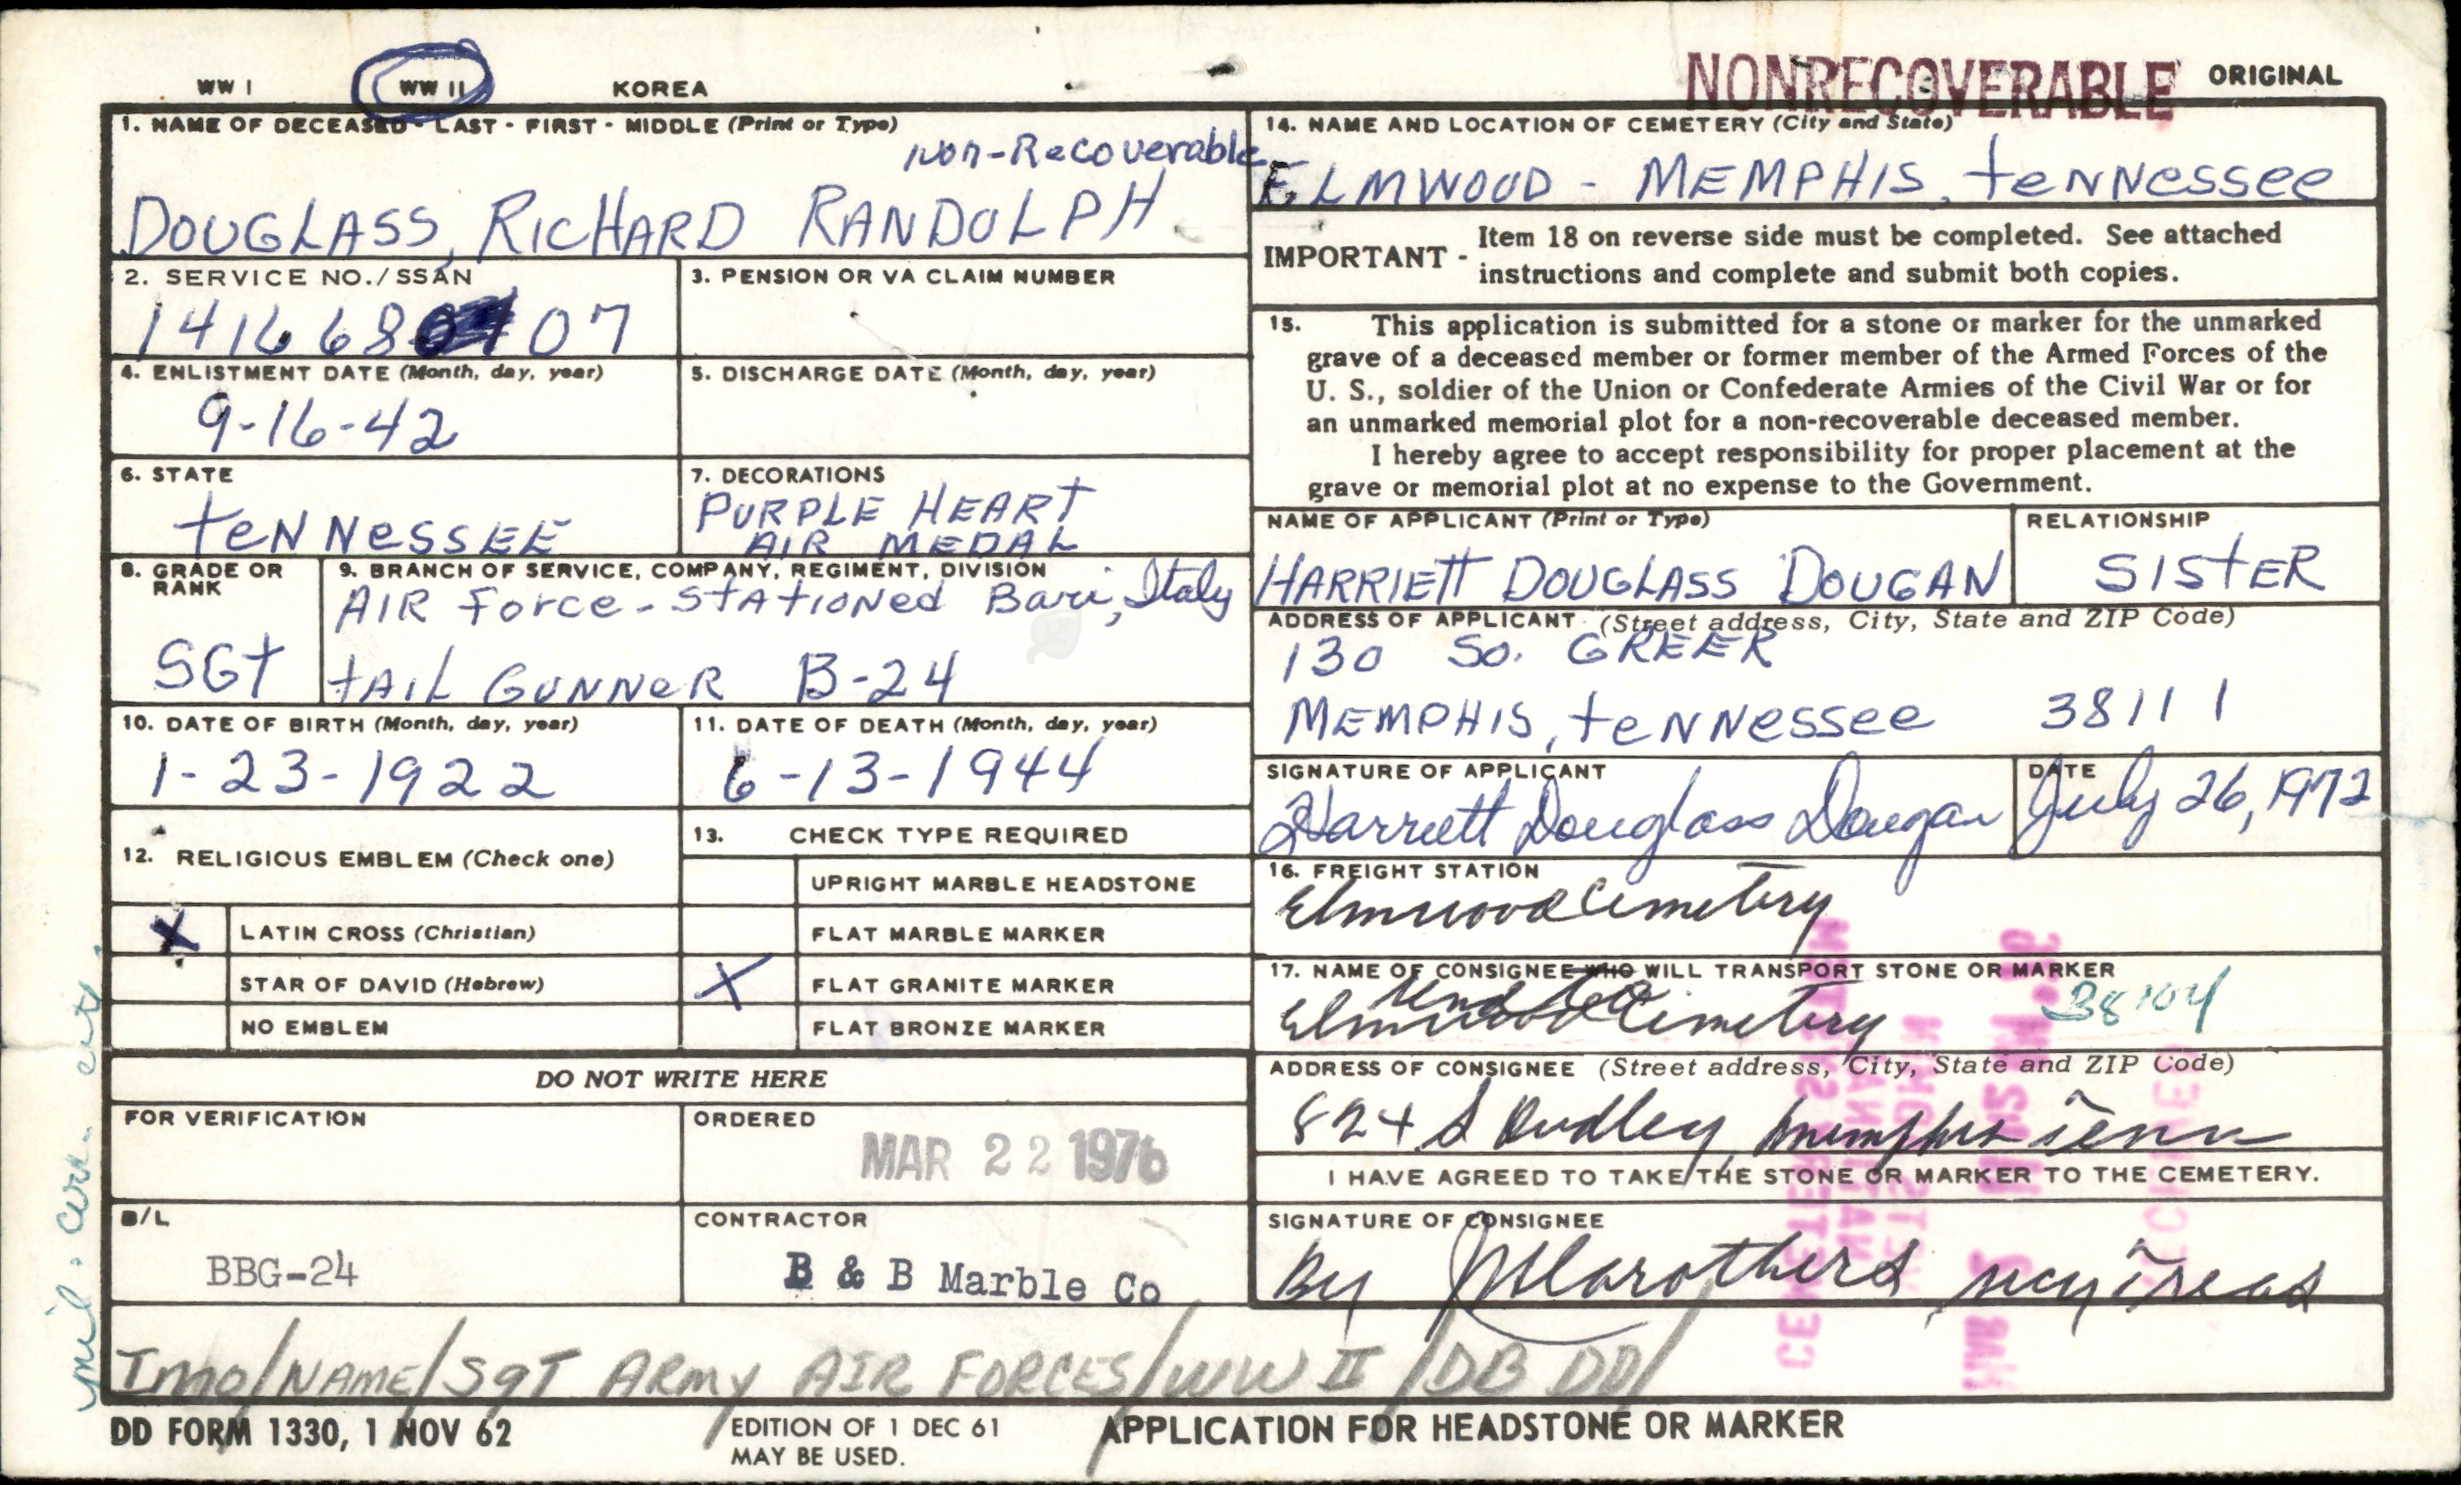 WW I WW II KOREA NONRECOVERABLE ORIGINAL
1. NAME OF DECEASED - LAST - FIRST - MIDDLE (Print or Type)
Non-Recoverable
DOUGLASS, RICHARD RANDOLPH
2. SERVICE NO./SSAN
14166807
3. PENSION OR VA CLAIM NUMBER
4. ENLISTMENT DATE (Month, day, year)
9-16-42
5. DISCHARGE DATE (Month, day, year)
6. STATE
tENNESSEE
7. DECORATIONS
PURPLE HEART
AIR MEDAL
8. GRADE OR
RANK
SGt
9. BRANCH OF SERVICE, COMPANY, REGIMENT, DIVISION
AIR Force - StAtIONed Bari, Italy
tAIL GUNNER B-24
10. DATE OF BIRTH (Month, day, year)
1-23-1922
11. DATE OF DEATH (Month, day, year)
6-13-1944
12. RELIGIOUS EMBLEM (Check one)
X LATIN CROSS (Christian)
STAR OF DAVID (Hebrew)
NO EMBLEM
13. CHECK TYPE REQUIRED
UPRIGHT MARBLE HEADSTONE
FLAT MARBLE MARKER
X FLAT GRANITE MARKER
FLAT BRONZE MARKER
DO NOT WRITE HERE
FOR VERIFICATION
ORDERED
MAR 22 1976
B/L
BBG-24
CONTRACTOR
B & B Marble Co
14. NAME AND LOCATION OF CEMETERY (City and State)
ELMWOOD - MEMPHIS, tENNessee
IMPORTANT - Item 18 on reverse side must be completed. See attached
instructions and complete and submit both copies.
15. This application is submitted for a stone or marker for the unmarked
grave of a deceased member or former member of the Armed Forces of the
U. S., soldier of the Union or Confederate Armies of the Civil War or for
an unmarked memorial plot for a non-recoverable deceased member.
I hereby agree to accept responsibility for proper placement at the
grave or memorial plot at no expense to the Government.
NAME OF APPLICANT (Print or Type)
HARRIETT DOUGLASS DOUGAN
RELATIONSHIP
SIStER
ADDRESS OF APPLICANT (Street address, City, State and ZIP Code)
130 So. GREER
MEMPHIS, tENNessee 38111
SIGNATURE OF APPLICANT
Harriett Douglass Dougan
DATE
July 26, 1972
16. FREIGHT STATION
Elmwood Cemetery
17. NAME OF CONSIGNEE WHO WILL TRANSPORT STONE OR MARKER
Send to
Elmwood Cemetery 38104
ADDRESS OF CONSIGNEE (Street address, City, State and ZIP Code)
824 S Dudley, Memphis Tenn
I HAVE AGREED TO TAKE THE STONE OR MARKER TO THE CEMETERY.
SIGNATURE OF CONSIGNEE
By
Imo/NAME/SgT ARmy AIR FORCES/WW II/DB DD/
DD FORM 1330, 1 NOV 62
EDITION OF 1 DEC 61
MAY BE USED.
APPLICATION FOR HEADSTONE OR MARKER